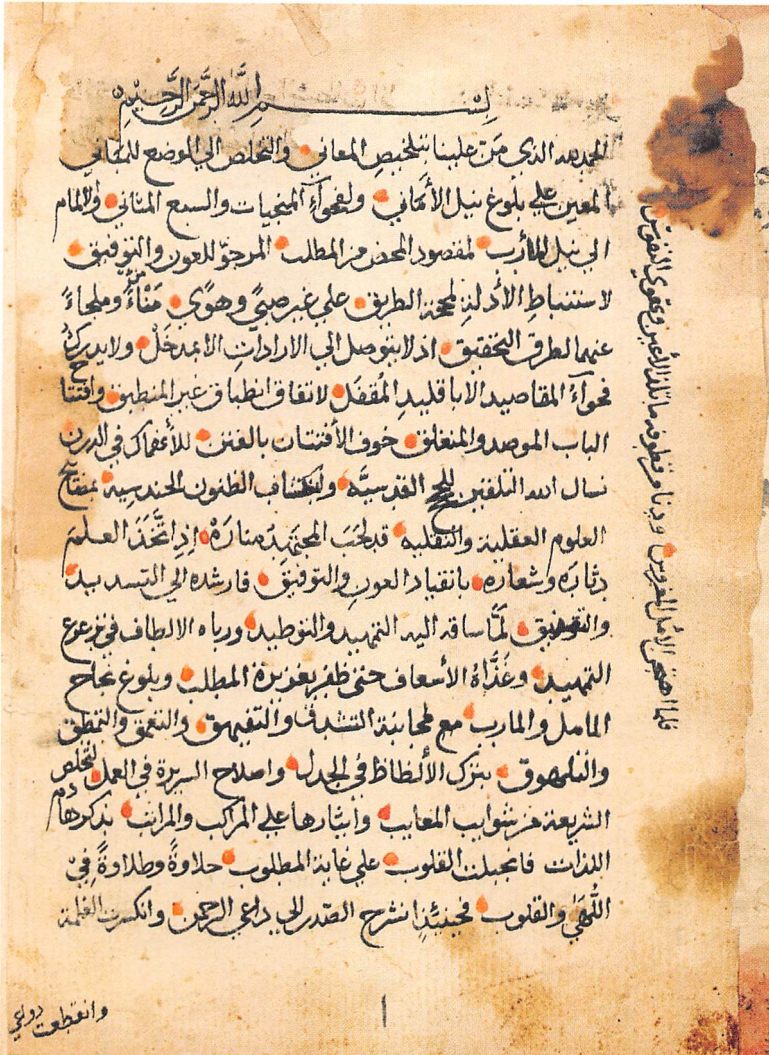 بسم الله الرحمن الرحيم
الحمد لله الذي مَنّ علينا بتلخيص المعاني والتخلص الي الموضع للمباني
المعين علي بلوغ نيل الأماني ولفحوآءِ المنجيات والسبع المثاني والالمام
الي نيل المأرب لمقصود المحض من المطلب المرجوّ للعون والتوفيق
لاستنباطِ الأدلةِ لمحجة الطريق علي غير صبيً وهوًي مَنْاءً وملجاءً
عنهما لطرق التحقيق اذ لا يتوصل الي الارادات الا بمدخَل ولا يدركُ
فحوآءُ المقاصيد الا باقليدِ المُقفَل لاتفاق انطباق غير المنطبق وافتتاح
الباب الموصد والمنغلق خوف الأفتتان بالفتن للأنهماك في الدرن
نسال الله التلقين القدسيّه ولكشاف الظنون الحندسيه بمفتاح
العلوم العقلية والنقليه قد لحَبَ المجتهِدَ منارَهْ إِذِ اتَّخَذَ العلمَ
دثارَه وشعارَه بانقياد العونِ والتوفيق فارشده الي التسديد
والتوفيق لَمَّا ساقه اليه التمهيد والتوطيد ورباه الالطاف في
التمهيد وغَذَّاهُ الأسعاف حتي ظفر بغويرة المطلب وبلوغ نجاح
المامل والمارب مع مجانبة التشدق والتفيهق والتعمق والتمطق
والتلهوق بترك الألظاظ في الجدل واصلاح السريرة في العمل لتخلص
الشريعة من شوايب المعايب وايثارها علي المراكب والمراتب بذكرها دم
اللذات فانجبلت القلوب علي غاية المطلوب حلاوةً وطلاوةً فِيْ
اللَّهَي والقلوب فحينئذٍ انشرح الصّدر الي داعي الرحمن وانكسرت الغلمة
وانقطعت دواعي
فلما اصتخن الأمل المغروس ودنا من قطوفه ما تلذ الأعين وتقوي النفوس
١